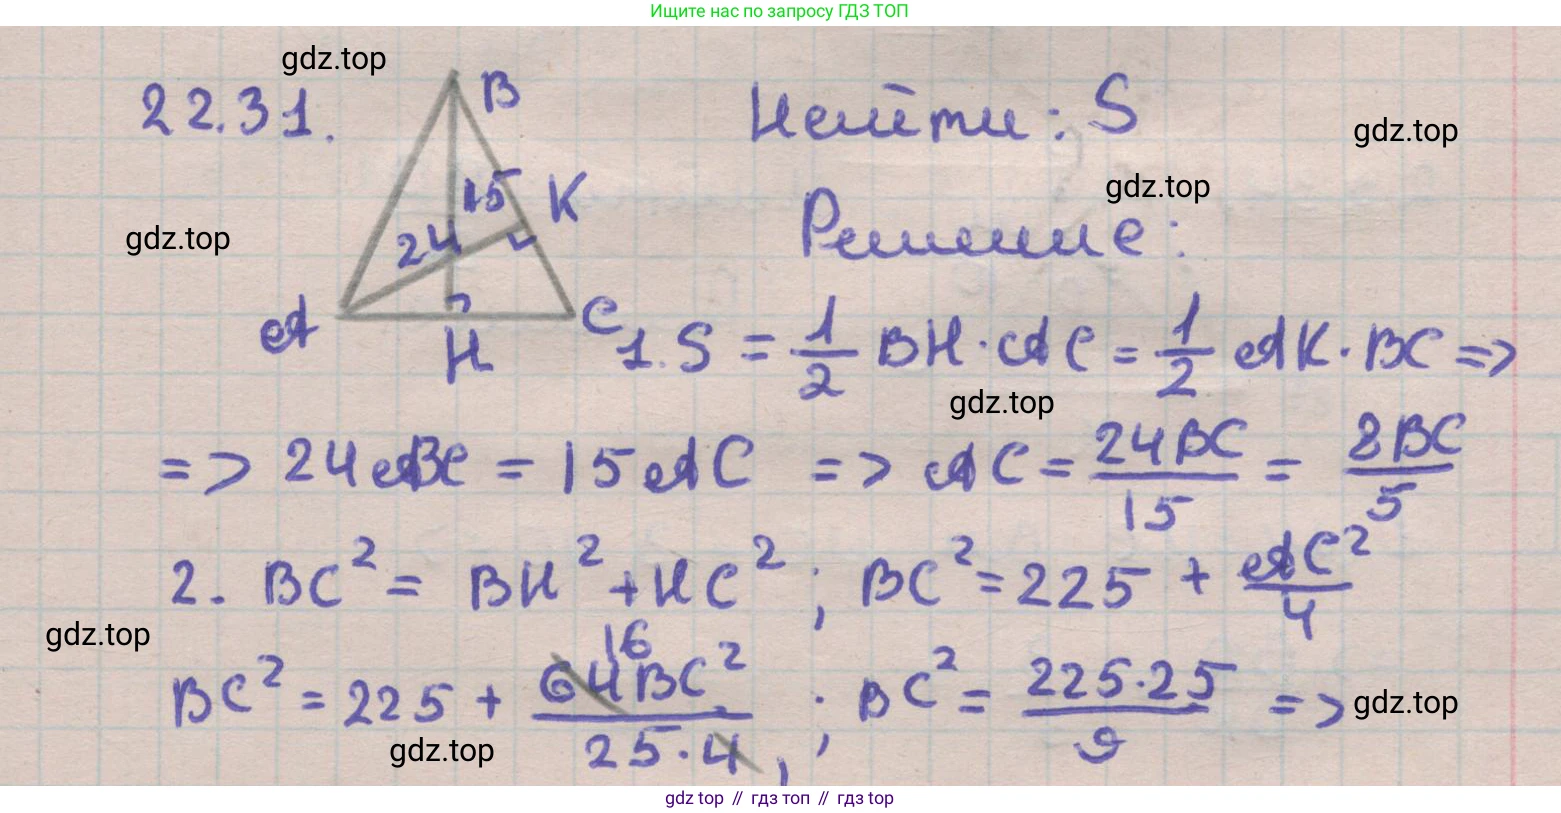 Ищите нас по запросу ГДЗ ТОП
gdz.top
22.31.
B
Найти: S
gdz.top
15
K
gdz.top
gdz.top
24
Решение:
A
H
C
1. S = 1/2 BH · AC = 1/2 AK · BC =>
gdz.top
=> 24 BC = 15 AC => AC = 24BC/15 = 8BC/5
2. BC² = BH² + HC² ; BC² = 225 + AC²/4
gdz.top
16
BC² = 225 + 64BC²/25·4 ; BC² = 225·25/9 =>
gdz.top
gdz.top
gdz top // гдз топ // гдз top